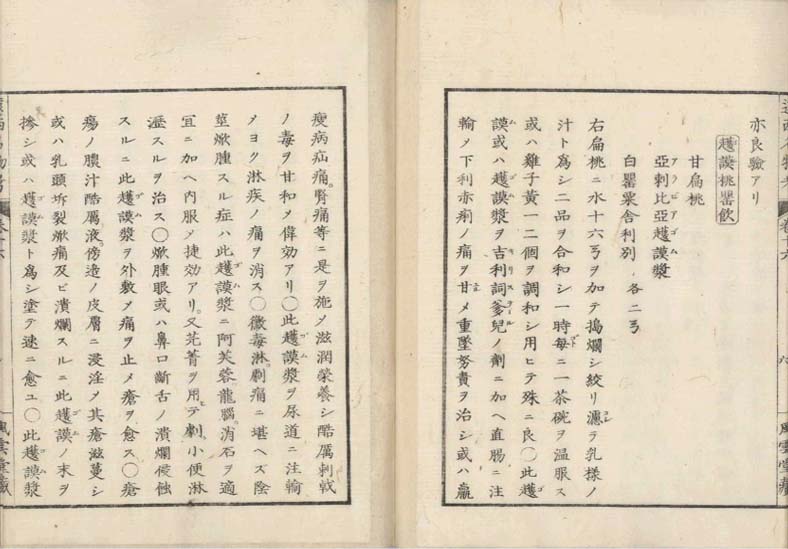 亦良驗アリ
䞤謨桃罌飲
甘扁桃
亞剌比亞䞤謨漿
アラビアゴム
白罌粟舎利別 各二弓
右扁桃ニ水十六弓ヲ加テ搗爛シ絞リ濾テ乳樣ノ
汁ト爲シ二品ヲ合和シ一時每ニ一茶碗ヲ温服ス
或ハ雞子黄一二個ヲ調和シ用ヒテ殊ニ良〇此䞤
謨或ハ䞤謨漿ヲ吉利詞爹兒ノ劑ニ加ヘ直腸ニ注
輸メ下利赤痢ノ痛ヲ甘メ重墜努責ヲ治シ或ハ羸
瘦病疝痛。腎痛等ニ是ヲ施メ滋潤榮養シ酷厲刺戟
ノ毒ヲ甘和メ偉効アリ〇此䞤謨漿ヲ尿道ニ注輸
メヨク淋疾ノ痛ヲ消ス〇黴毒淋。劇痛ニ堪ヘス陰
莖焮腫スル症ハ此䞤謨漿ニ阿芙蓉龍腦。消石ヲ適
宜ニ加ヘ内服メ捷効アリ。又芫菁ヲ用ヒテ劇。小便淋
瀝スルヲ治ス〇焮腫眼或ハ鼻口斷舌ノ潰爛侵蝕
スルニ此䞤謨漿ヲ外敷メ痛ヲ止メ瘡ヲ愈ス〇瘡
瘍ノ膿汁酷厲液。傍造ノ皮膚ニ浸淫メ其瘡滋蔓シ
或ハ乳頭坼裂焮痛及ビ潰爛スルニ此䞤謨ノ末ヲ
摻シ或ハ䞤謨漿ト爲シ塗テ速ニ愈ユ〇此䞤謨漿
卷十六
風雲堂藏
風雲堂藏